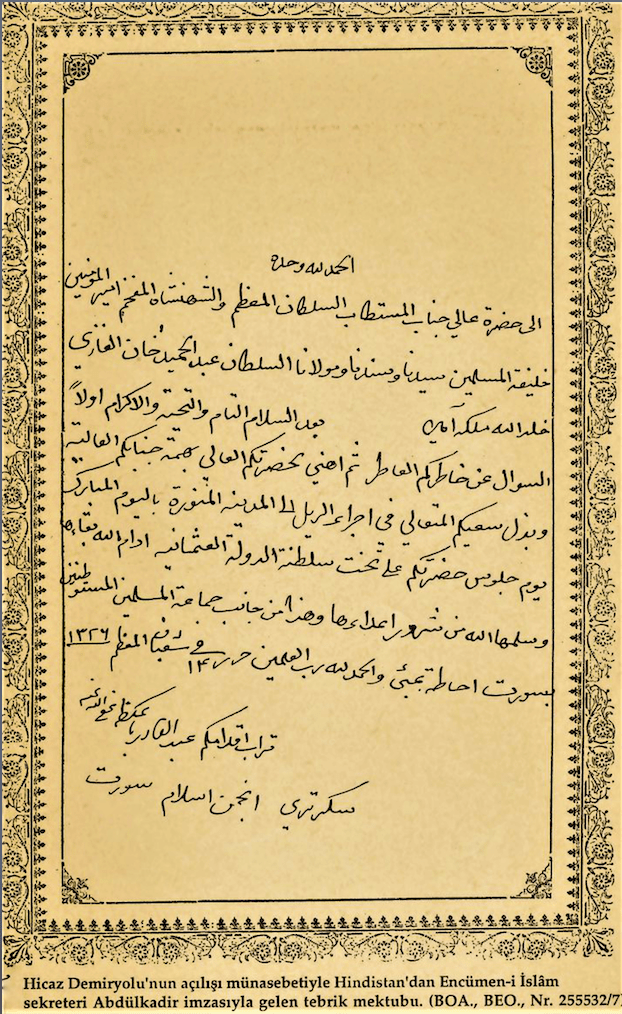 الحمد لله وحده
الى حضرة عالي جناب المستطاب السلطان المعظم والشهنشاه المفخم امير المؤمنين
خليفة المسلمين سيدنا وسندنا ومولانا السلطان عبد الحميد خان الغازي
خلد الله ملكه آمين بعد السلام التام والتحية والاكرام اولاً
السوال عن خاطركم العاطر ثم اهني بحضرتكم العالي بهمة جنابكم العالية
وبذل سعيكم المتعالي في اجراء الريل الى المدينة المنورة باليوم المبارك
يوم جلوس حضرتكم على تخت سلطنة الدولة العثمانية ادام الله بقاءها
وسلمها الله من شرور اعداءها وهذا من جانب جماعة المسلمين المستوطنين
بسورت احاطة بمبئي والحمد لله رب العلمين حرر ١٤ في شعبان المعظم ١٣٢٦
تراب اقدامكم عبد القادر عفى الله عنه
سكرتري انجمن اسلام سورت
Hicaz Demiryolu'nun açılışı münasebetiyle Hindistan'dan Encümen-i İslâm
sekreteri Abdülkadir imzasıyla gelen tebrik mektubu. (BOA., BEO., Nr. 255532/7)